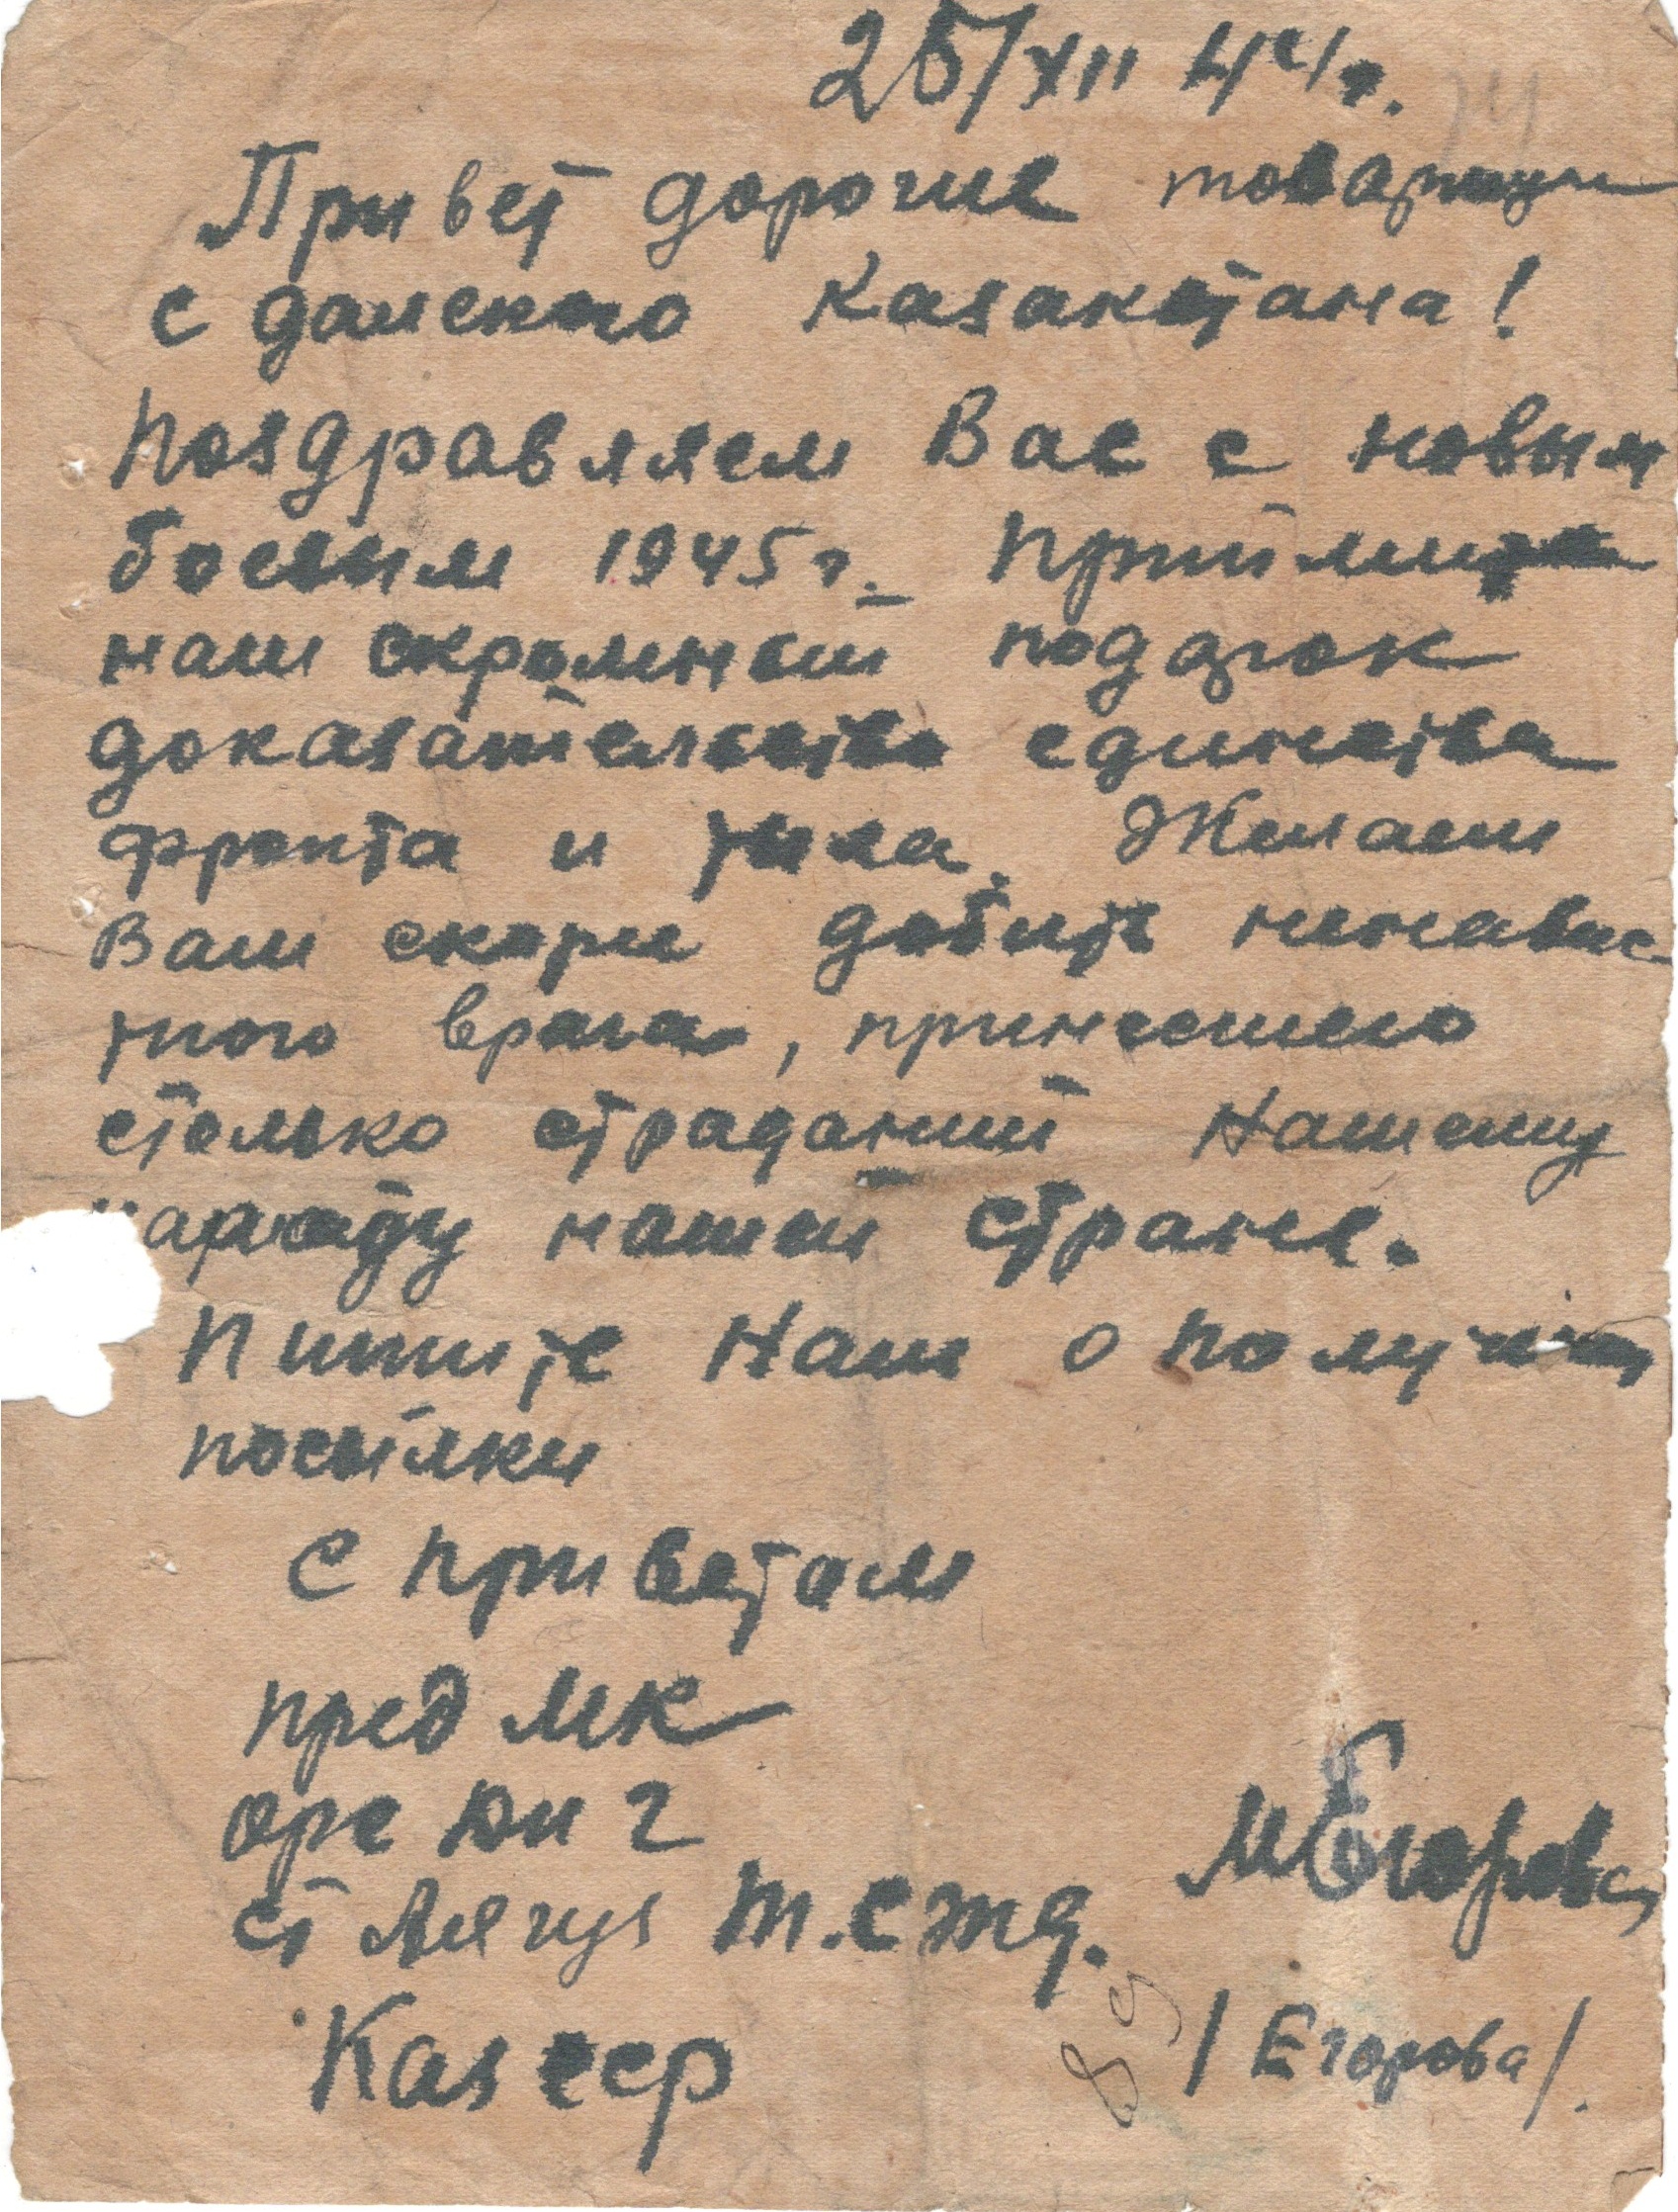 25/XII 44г.
Привет дорогие товарищи
с далекого Казахстана!
Поздравляем Вас с новым
боевым 1945г. Приймите
наш скромный подарок
доказательство единства
фронта и тыла. Желаем
Вам скорее добить ненавис
тного врага, принесшего
столько страданий Нашему
народу нашей стране.
Пишите Нам о получении
посылки
С приветом
пред МК
орс
ст Аягуз Т.С жд.
Каз сср
МЕгорова
89
/Егорова/.